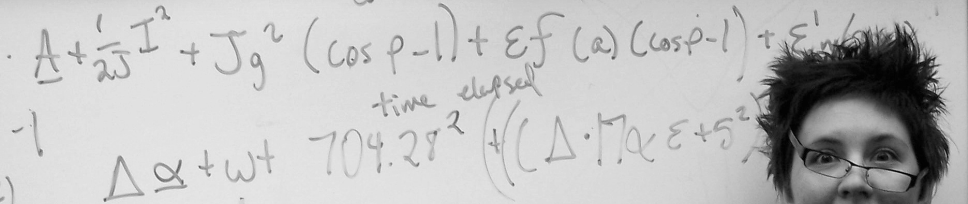 . A + 1/2J I² + Jg² (cos p - 1) + εf (a) (cos p - 1) + ε'
time elapsed
-1 Δα + ωt 704.28² (+((Δ·Πα ε + 5²)